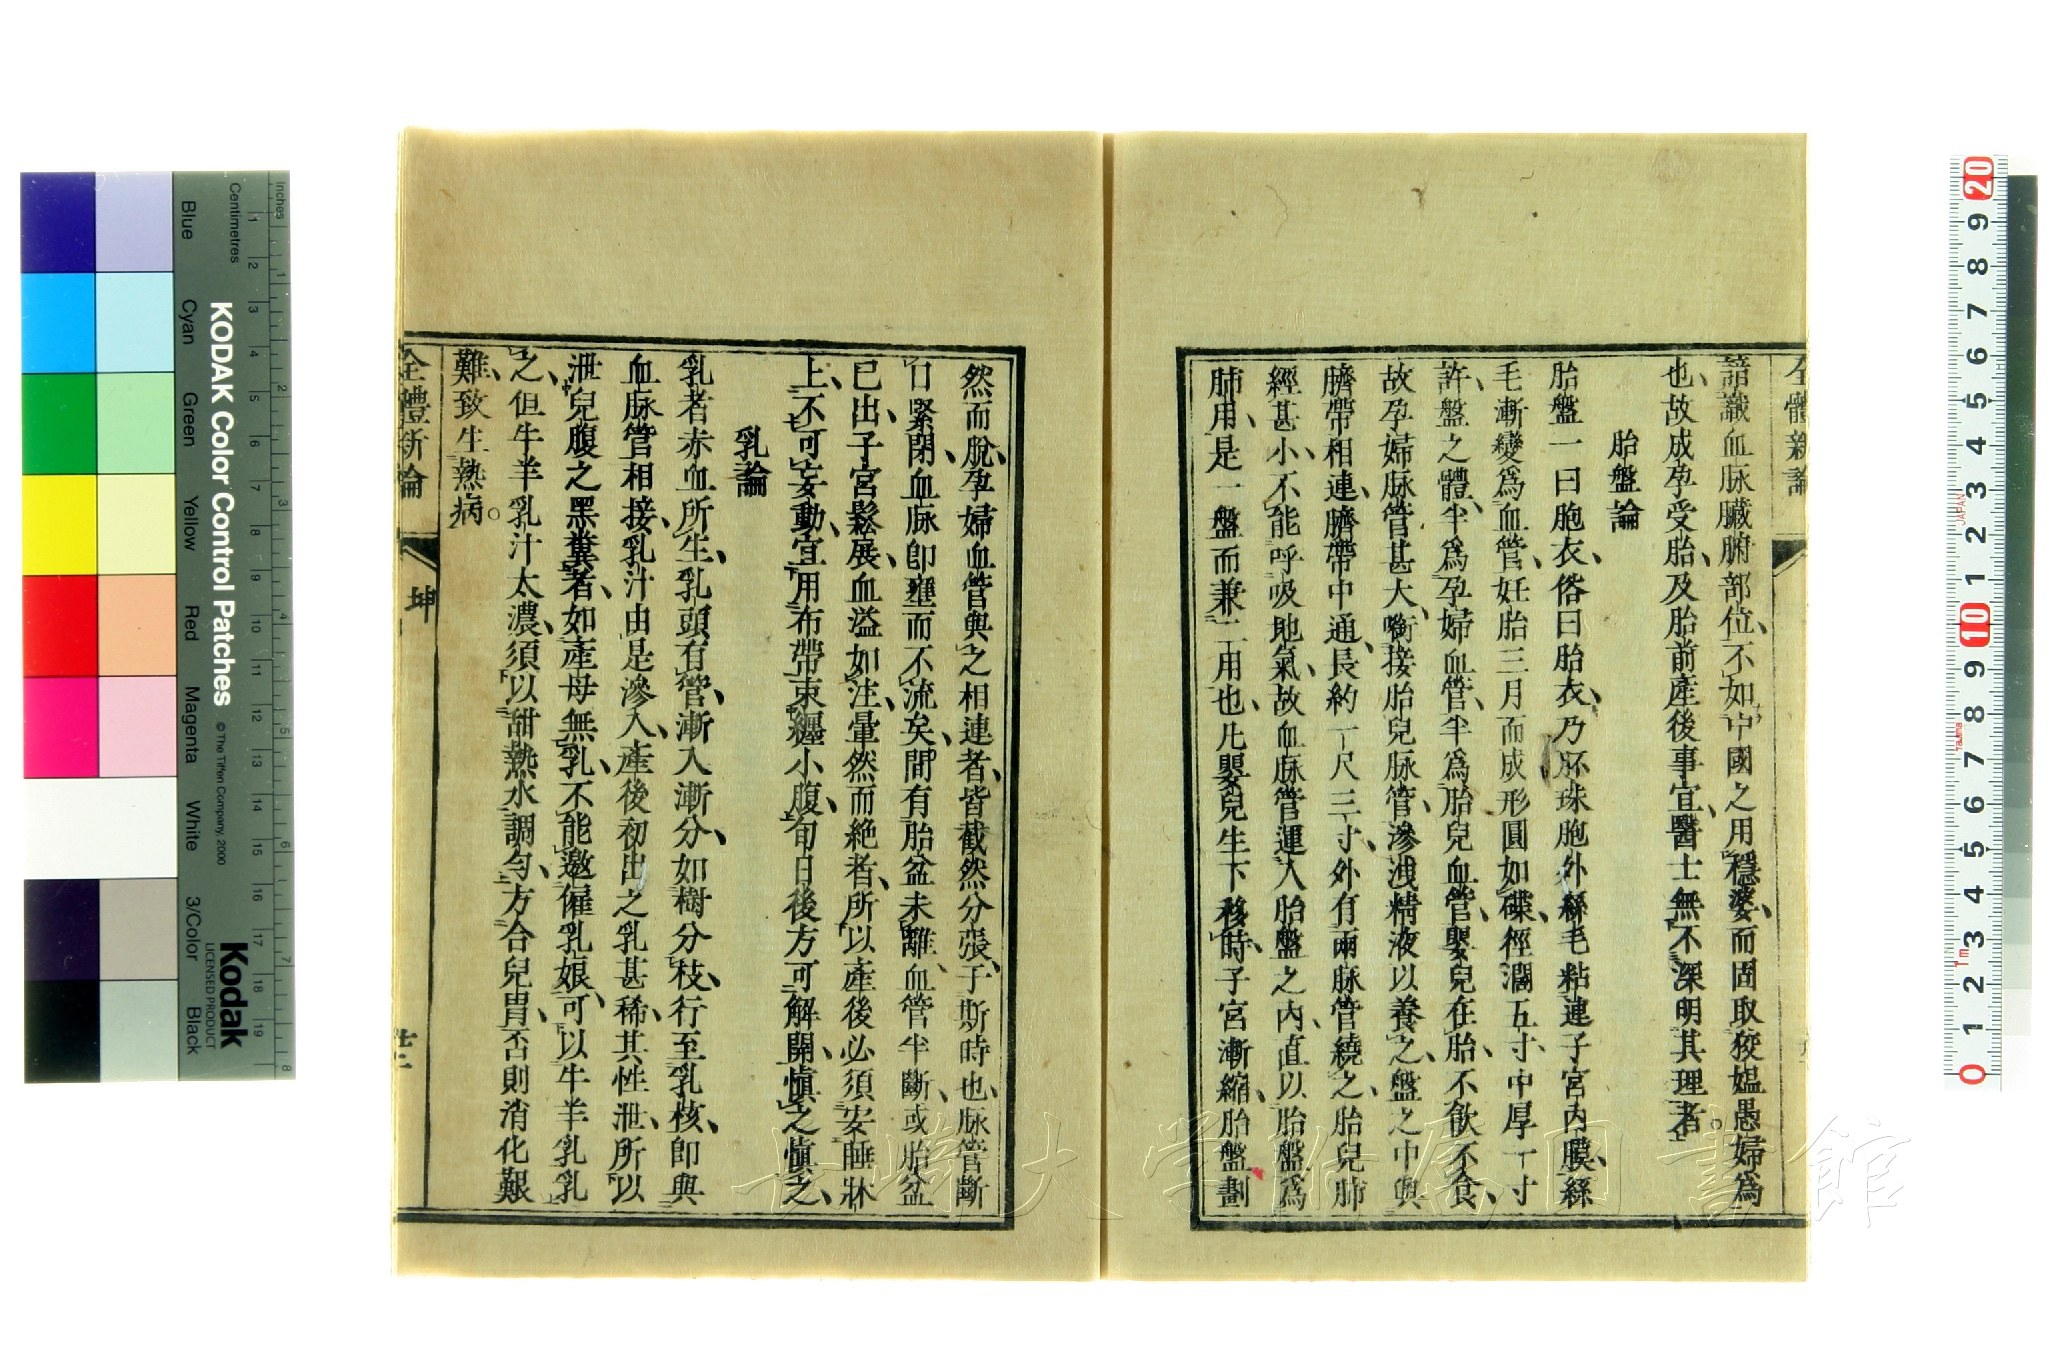 全體新論
諳識血脉臟腑部位、不如中國之用穩婆、而固取狡媼愚婦為
也、故成孕受胎、及胎前產後事宜、醫士無不深明其理者。
胎盤論
胎盤一曰胞衣、俗曰胎衣、乃胚珠胞外絲毛粘連子宮內膜、絲
毛漸變為血管、妊胎三月而成形圓如碟、徑濶五寸、中厚一寸
許、盤之體、半為孕婦血管、半為胎兒血管、嬰兒在胎、不飲不食、
故孕婦脉管甚大、啣接胎兒脉管、滲洩精液以養之、盤之中與
臍帶相連、臍帶中通、長約一尺三寸、外有兩脉管繞之、胎兒肺
經甚小、不能呼吸地氣、故血脉管運入胎盤之內、直以胎盤為
肺用、是一盤而兼二用也、凡嬰兒生下移時、子宮漸縮、胎盤劃
然而脫、孕婦血管與之相連者、皆截然分張、于斯時也、脉管斷
口緊閉、血脉卽壅而不流矣、間有胎盆未離、血管半斷、或胎盆
已出、子宮鬆展、血溢如注、暈然而絶者、所以產後必須安睡牀
上、不可妄動、宜用布帶束纒小腹、旬日後方可解開、慎之慎之、
乳論
乳者赤血所生、乳頭有管、漸入漸分、如樹分枝、行至乳核、卽與
血脉管相接、乳汁由是滲入、產後初出之乳甚稀、其性泄、所以
泄兒腹之黑糞者、如產母無乳、不能邀僱乳娘、可以牛羊乳乳
之、但牛羊乳汁太濃、須以甜熱水調勻、方合兒胃、否則消化艱
難、致生熱病。
全體新論
坤
廿二
長崎大学附属図書館
KODAK Color Control Patches
© The Tiffen Company, 2000
Kodak
LICENSED PRODUCT
Inches
Centimetres
Blue
Cyan
Green
Yellow
Red
Magenta
White
3/Color
Black
JAPAN
Tajima
1m